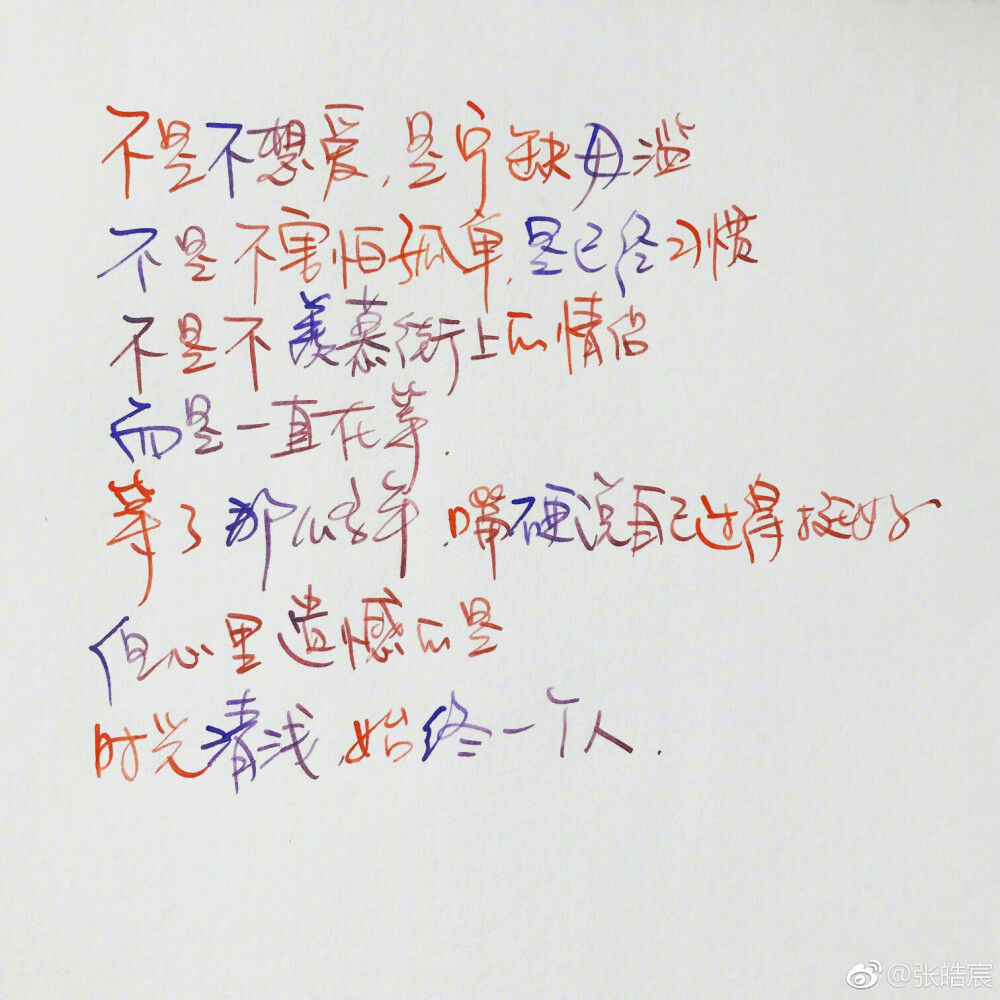 不是不想爱,是宁缺毋滥
不是不害怕孤单,是已经习惯
不是不羡慕街上的情侣
而是一直在等.
等了那么多年,嘴硬说自己过得挺好
但心里遗憾的是
时光清浅,始终一个人.
@张皓宸